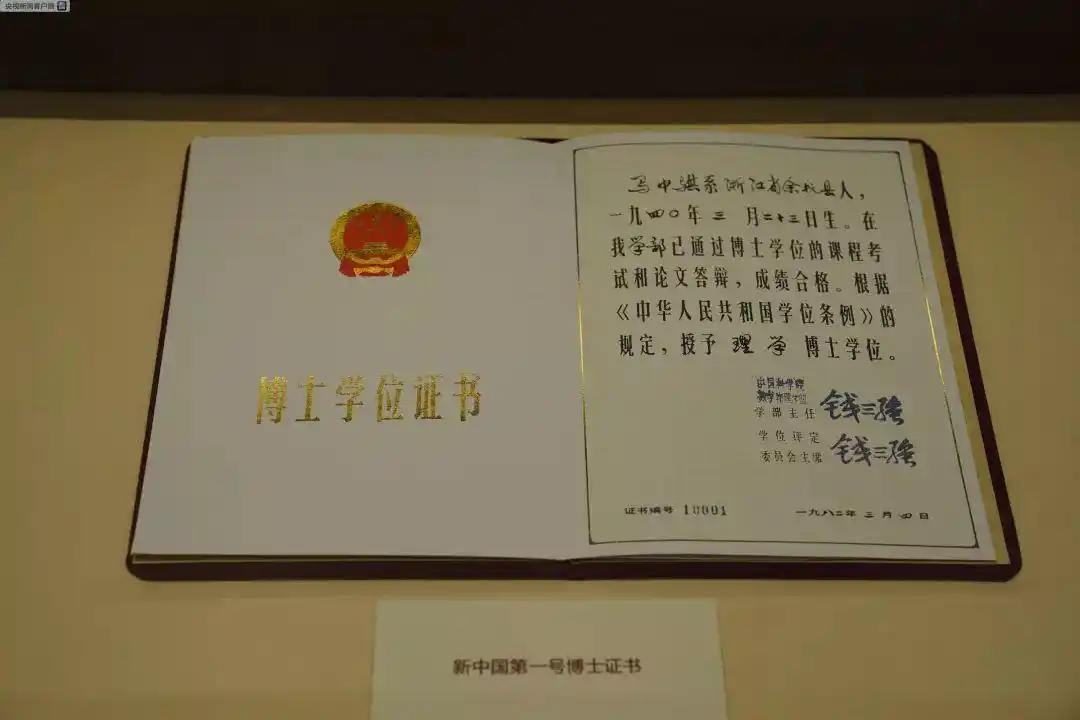 央视新闻客户端
博士学位证书
马中骐系浙江省余杭县人，
一九四〇年三月二十三日生。在
我学部已通过博士学位的课程考
试和论文答辩，成绩合格。根据
《中华人民共和国学位条例》的
规定，授予理学博士学位。
中国科学院
数学物理学部
学部主任 钱三强
学位评定
委员会主席 钱三强
证书编号 10001
一九八二年三月四日
新中国第一号博士证书